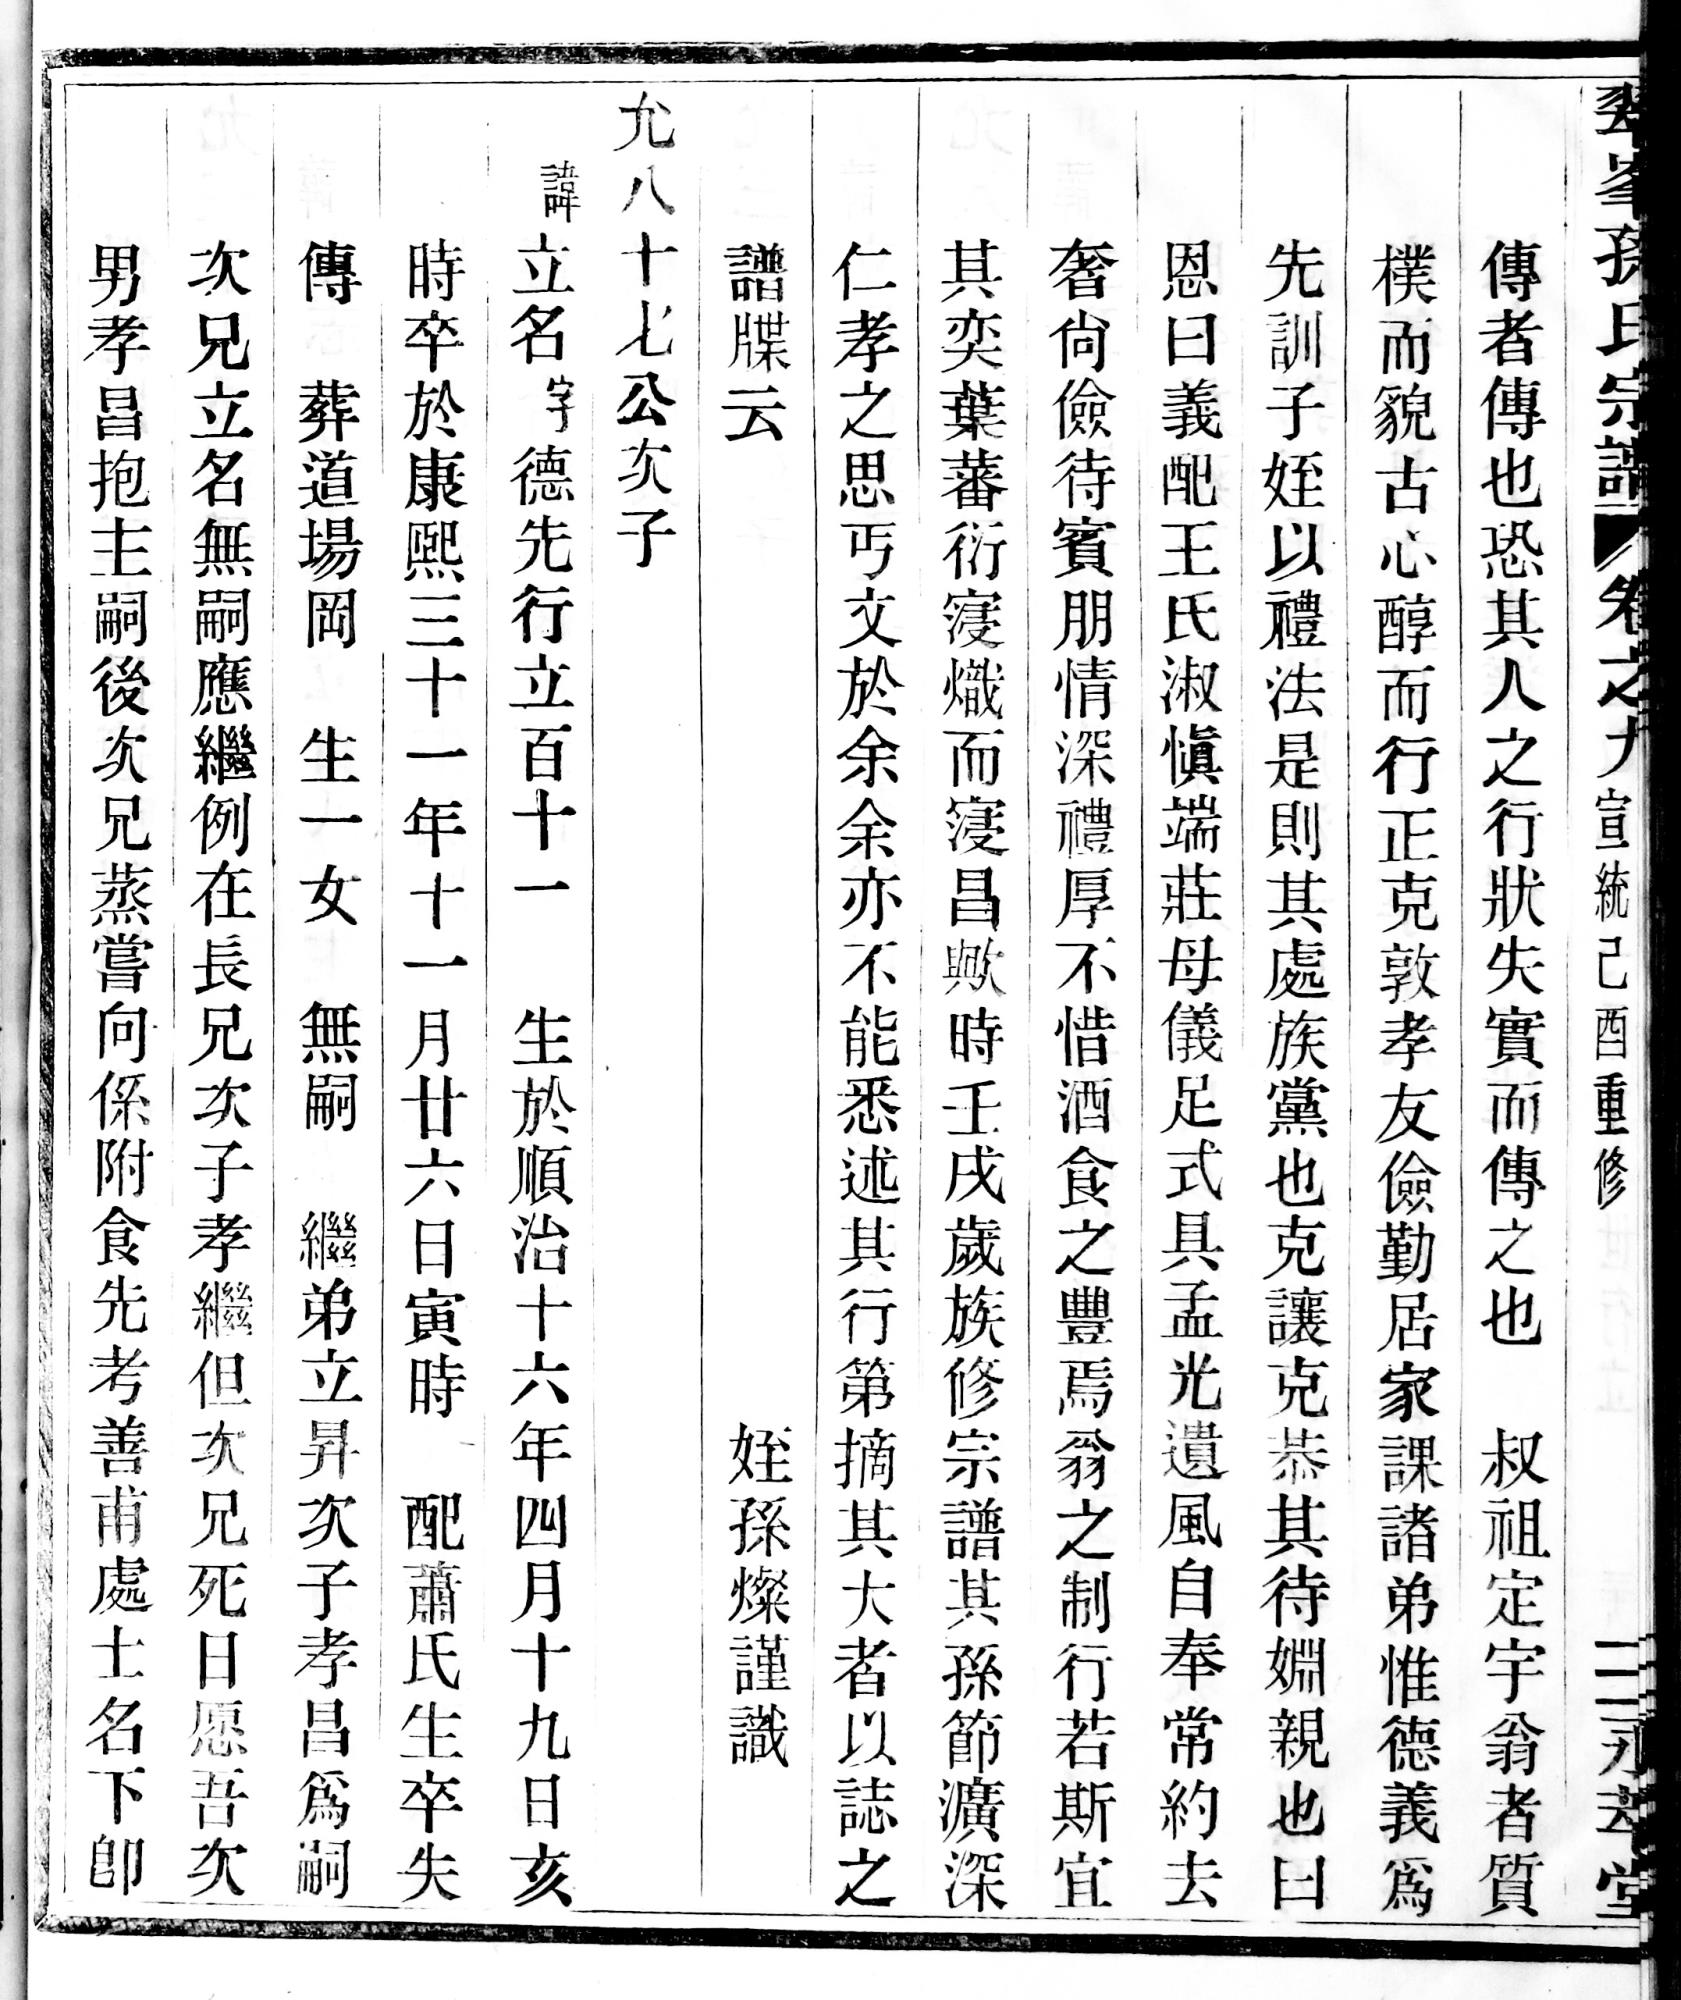 翠峯孫氏宗譜 卷之九 宣統己酉重修 二 永萃堂
傳者傳也恐其人之行狀失實而傳之也 叔祖定宇翁者質
樸而貌古心醇而行正克敦孝友儉勤居家課諸弟惟德義爲
先訓子姪以禮法是則其處族黨也克讓克恭其待婣親也曰
恩曰義配王氏淑愼端莊母儀足式具孟光遺風自奉常約去
奢尙儉待賓朋情深禮厚不惜酒食之豐焉翁之制行若斯宜
其奕葉蕃衍寖熾而寖昌歟時壬戌歲族修宗譜其孫節瀇深
仁孝之思丐文於余余亦不能悉述其行第摘其大者以誌之
譜牒云 姪孫燦謹識
允八十七公次子
諱立名字德先行立百十一 生於順治十六年四月十九日亥
時卒於康熙三十一年十一月廿六日寅時 配蕭氏生卒失
傳 葬道場岡 生一女 無嗣 繼弟立昇次子孝昌爲嗣
次兄立名無嗣應繼例在長兄次子孝繼但次兄死日愿吾次
男孝昌抱主嗣後次兄蒸嘗向係附食先考善甫處士名下卽